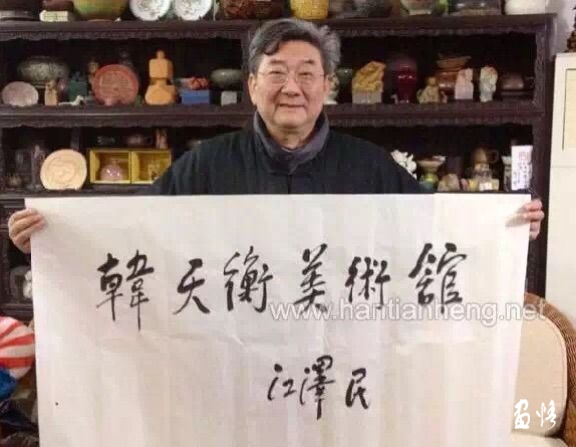 韓天衡美術館
www.hantianheng.net
江澤民